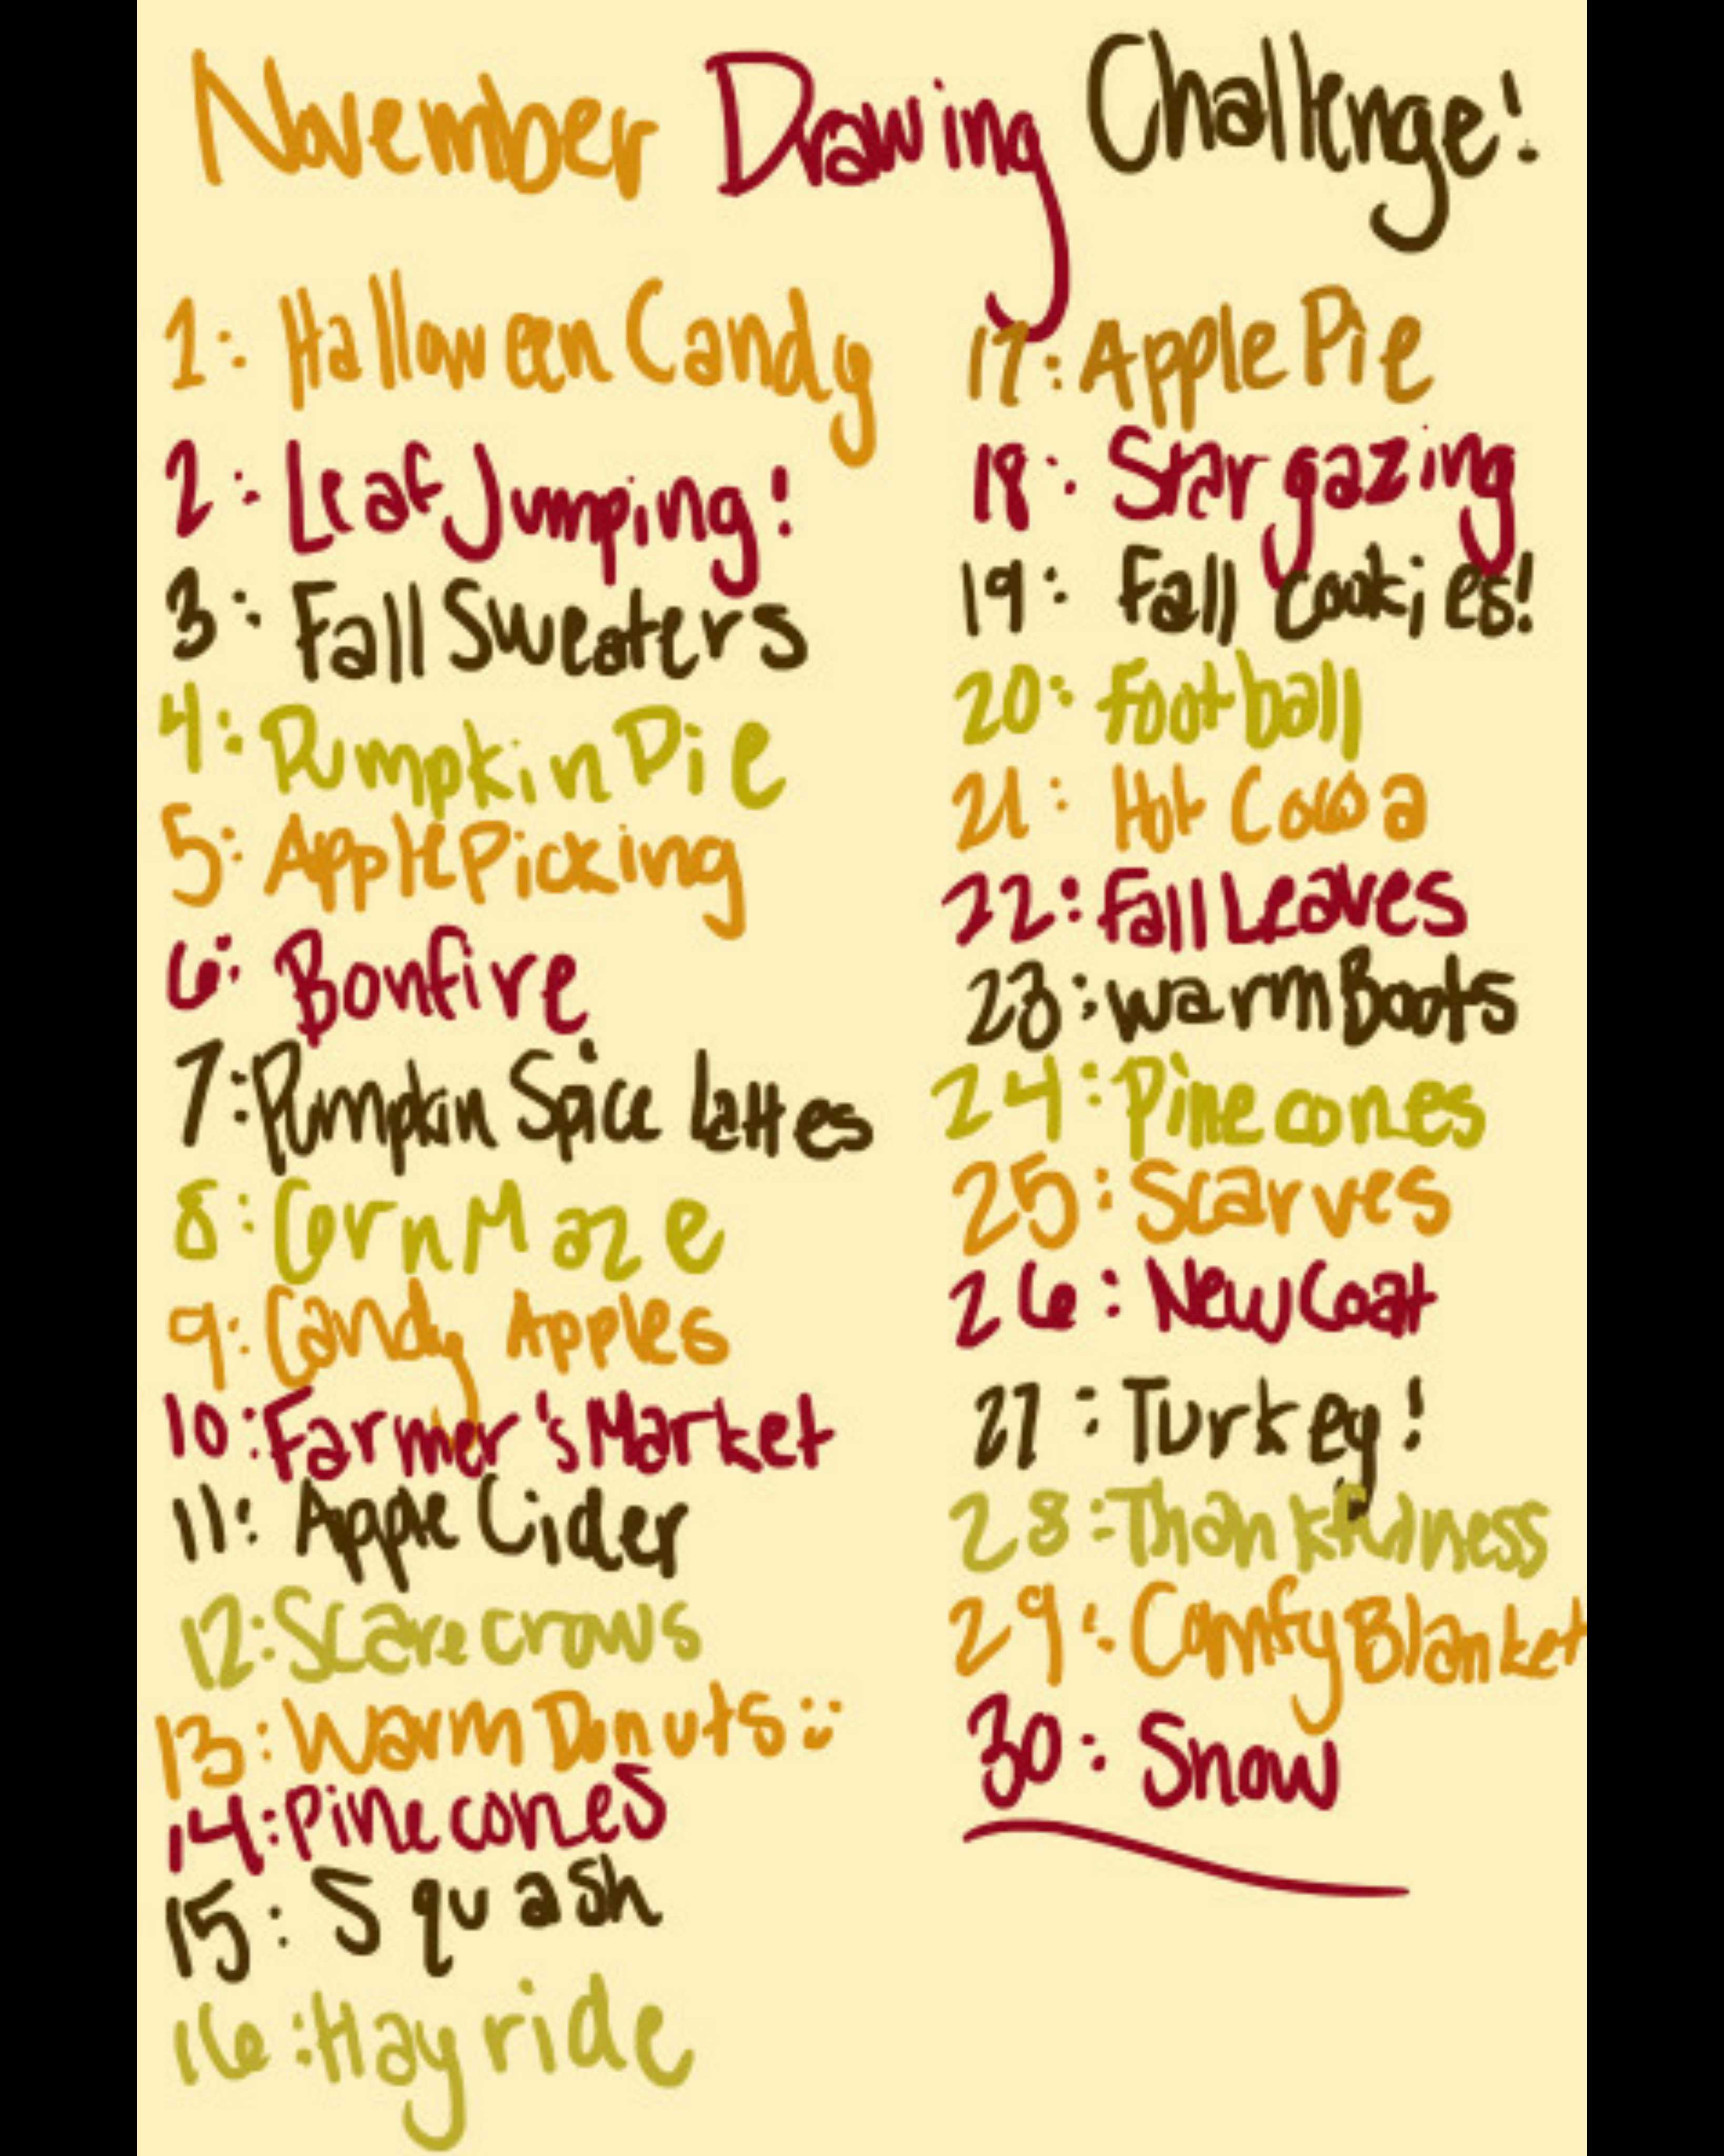 November Drawing Challenge!
1: Halloween Candy
2: Leaf Jumping!
3: Fall Sweaters
4: Pumpkin Pie
5: Apple Picking
6: Bonfire
7: Pumpkin Spice Lattes
8: Corn Maze
9: Candy Apples
10: Farmer's Market
11: Apple Cider
12: Scarecrows
13: Warm Donuts :)
14: Pinecones
15: Squash
16: Hayride
17: Apple Pie
18: Stargazing
19: Fall Cookies!
20: Football
21: Hot Cocoa
22: Fall Leaves
23: Warm Boots
24: Pinecones
25: Scarves
26: New Coat
27: Turkey!
28: Thankfulness
29: Comfy Blanket
30: Snow